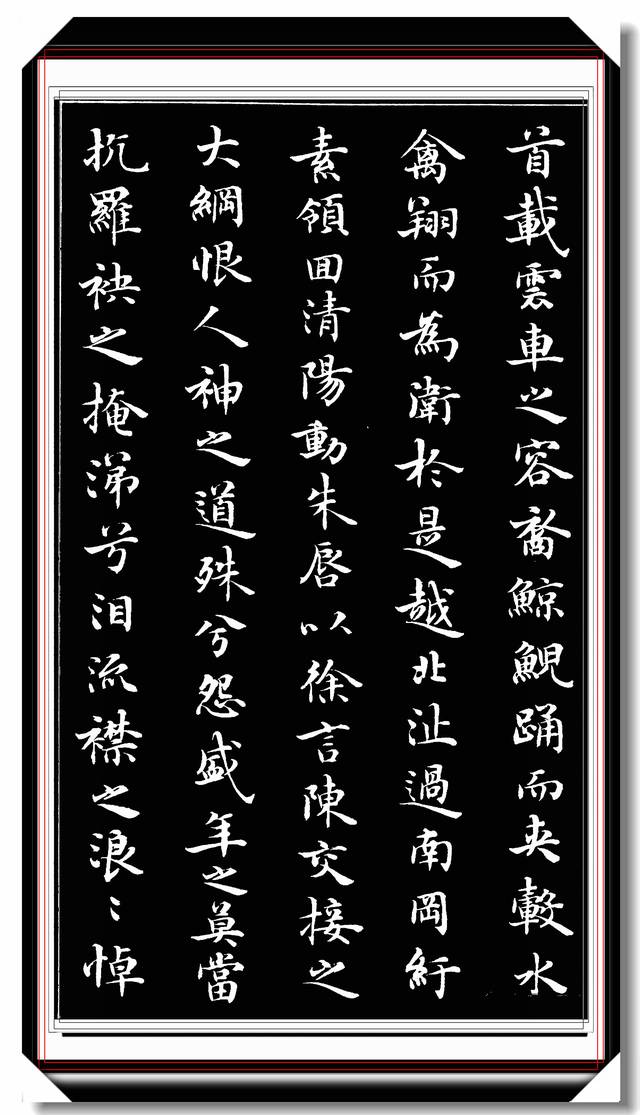 首載雲車之容裔鯨鯢踊而夾轂水
禽翔而為衛於是越北沚過南岡紆
素領囬清陽動朱唇以徐言陳交接之
大綱恨人神之道殊兮怨盛年之莫當
抗羅袂之掩涕兮泪流襟之浪〻悼